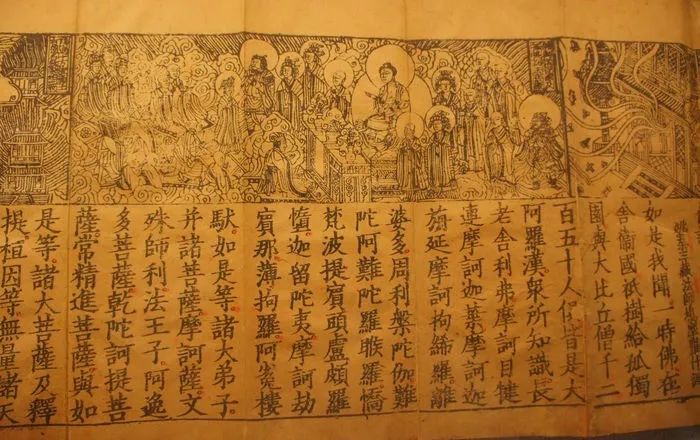 如是我聞一時佛在
舍衛國祇樹給孤獨
園與大比丘僧千二
百五十人俱皆是大
阿羅漢衆所知識長
老舍利弗摩訶目犍
連摩訶迦葉摩訶迦
旃延摩訶拘絺羅離
婆多周利槃陀伽難
陀阿難陀羅睺羅憍
梵波提賓頭盧頗羅
墮迦留陀夷摩訶劫
賓那薄拘羅阿㝹樓
馱如是等諸大弟子
并諸菩薩摩訶薩文
殊師利法王子阿逸
多菩薩乾陀訶提菩
薩常精進菩薩與如
是等諸大菩薩及釋
提桓因等無量諸天